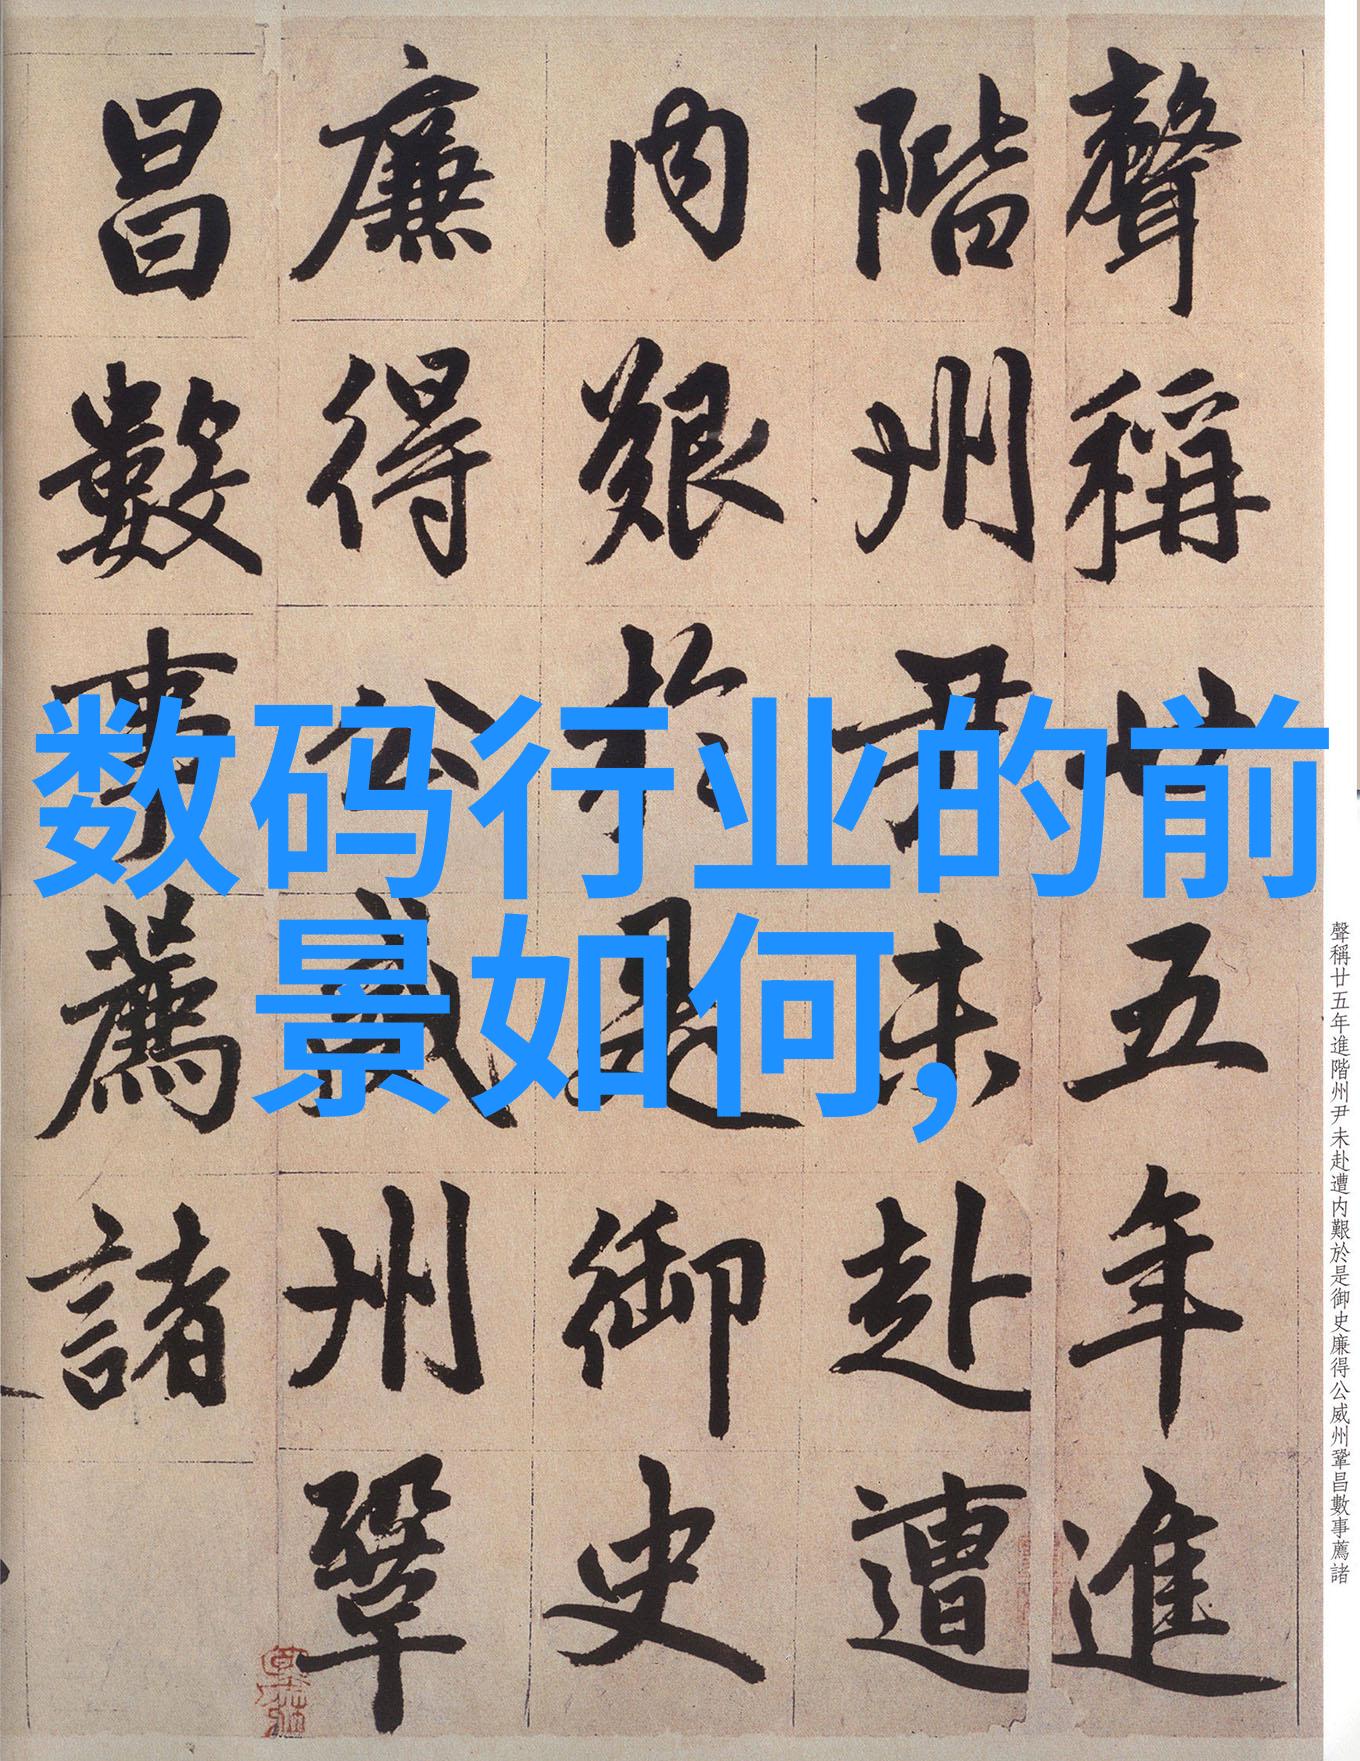 聲稱廿五年進
階州尹未赴遭
內艱於是御史
廉得公威州鞏
昌數事薦諸
数码行业的前
景如何,
聲稱廿五年進階州尹未赴遭内艱於是御史廉得公威州鞏昌數事薦諸